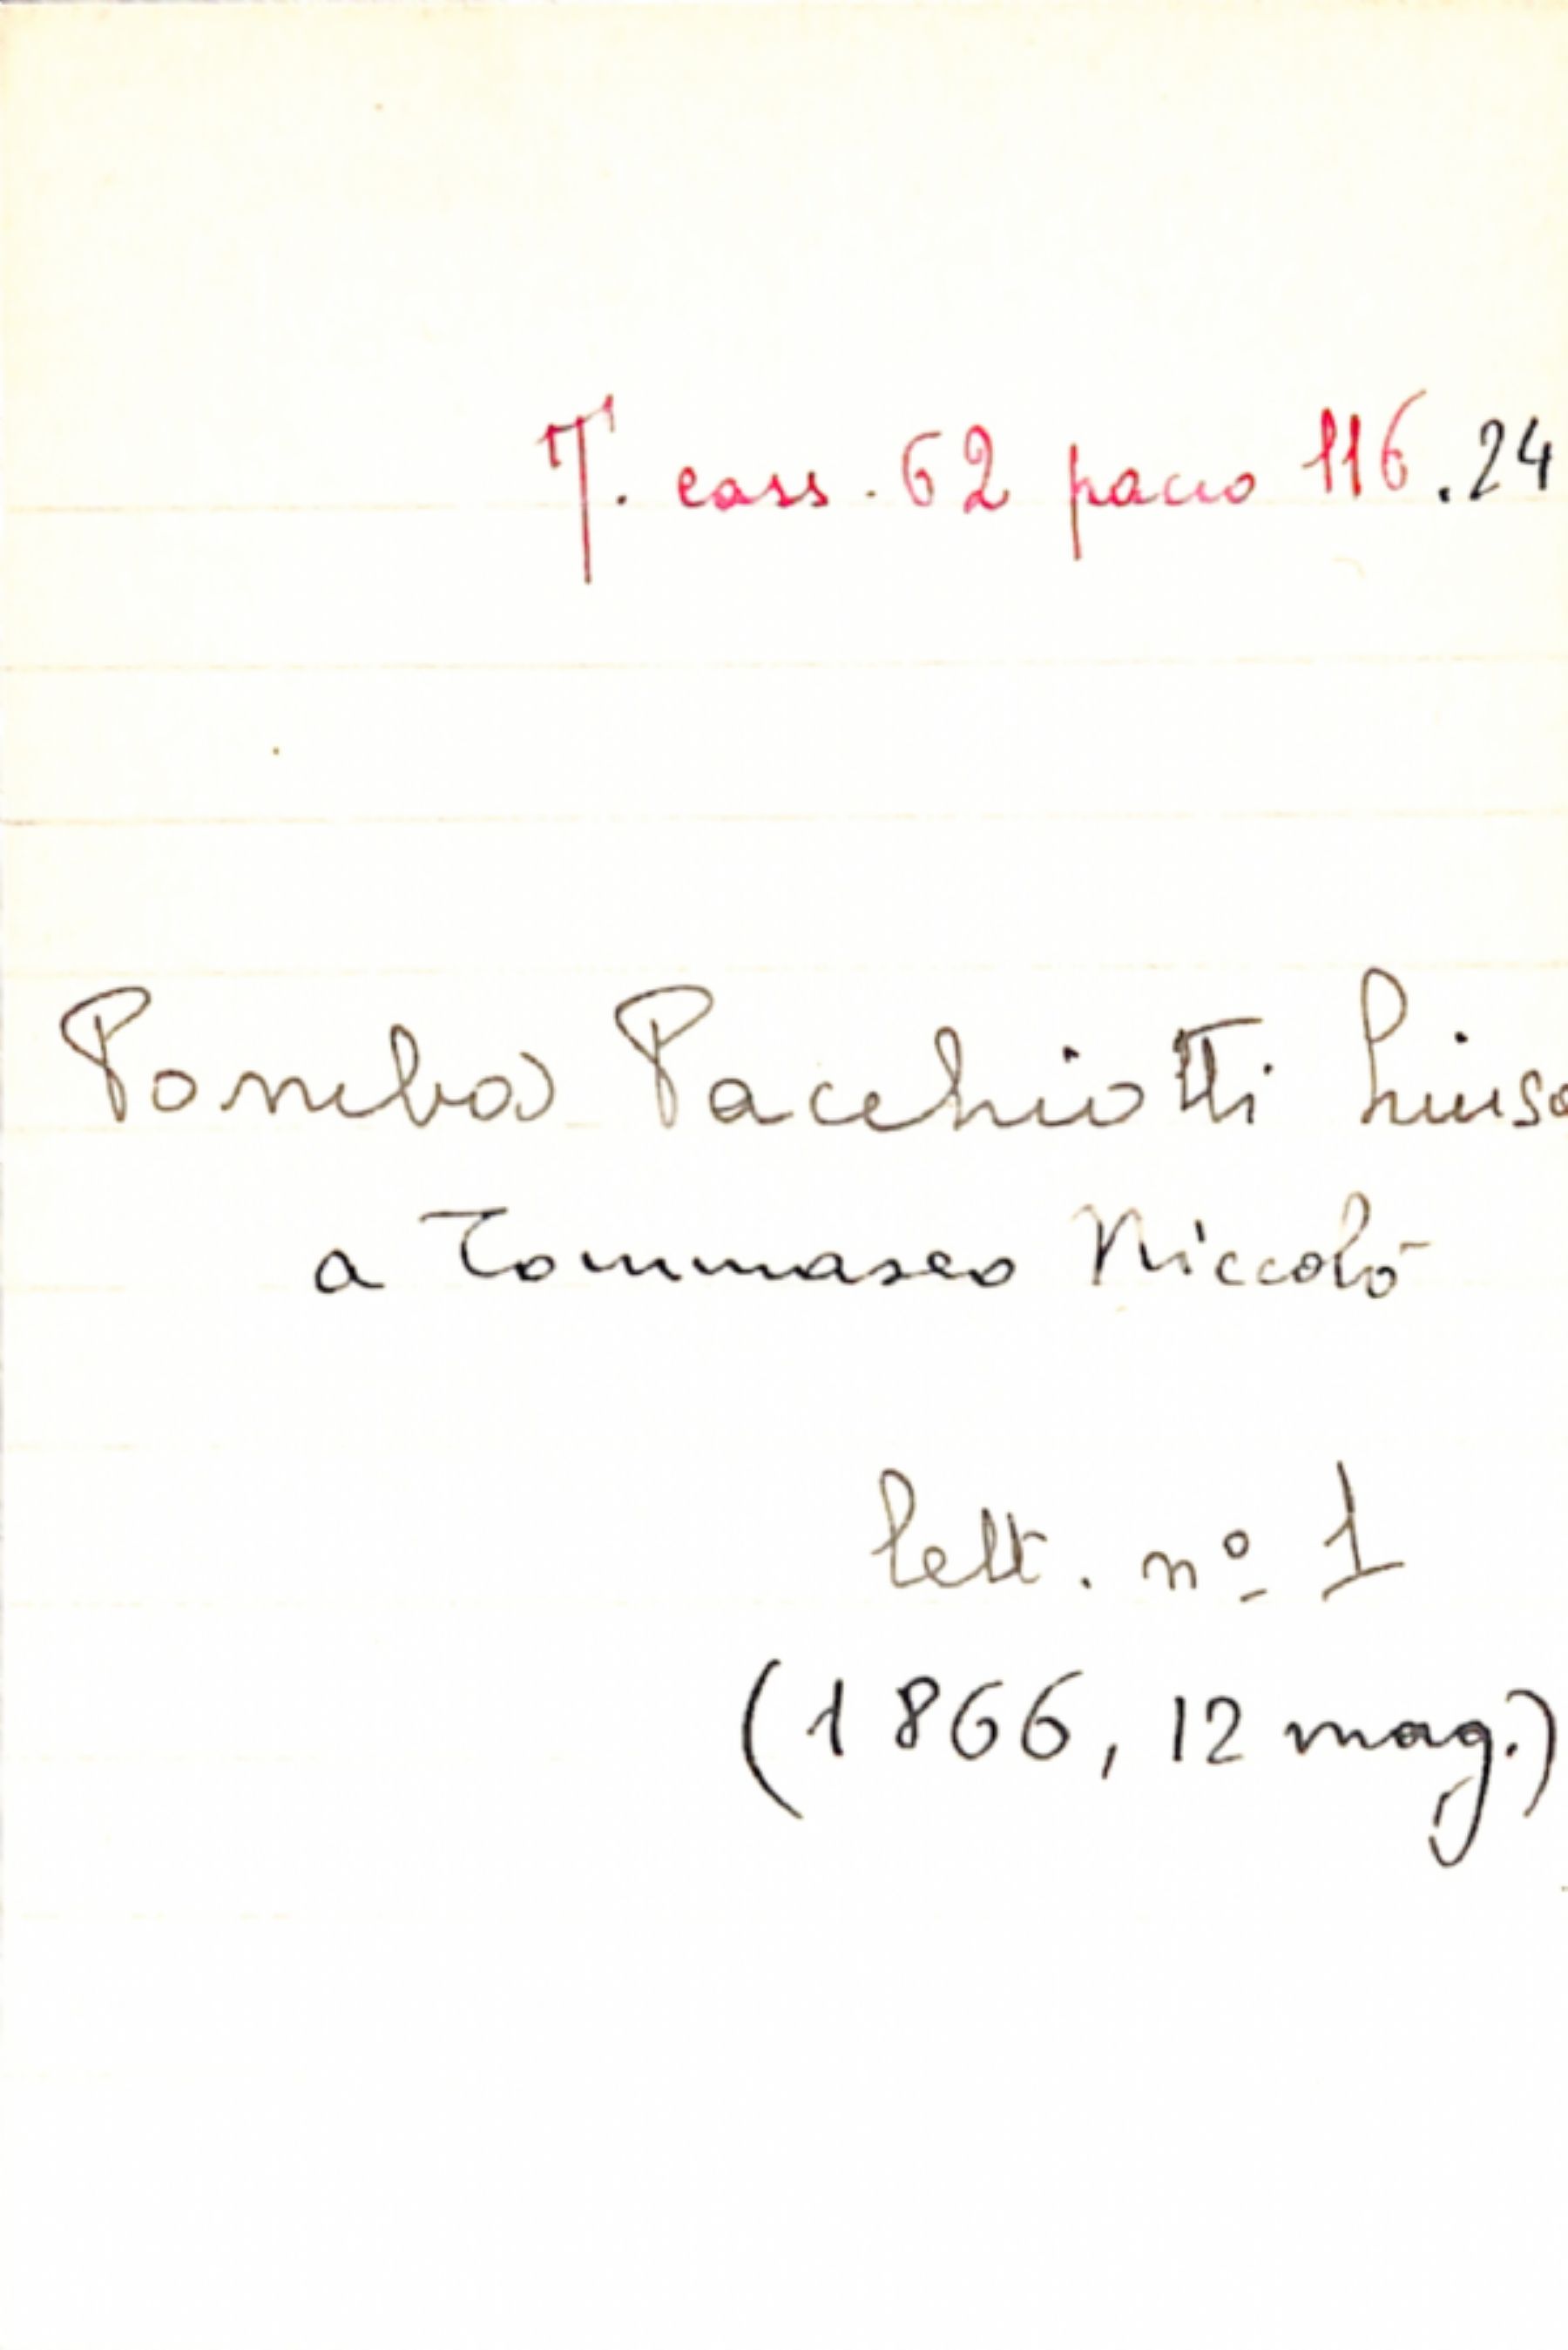 T. cass. 62 pacco 116.24
Pomba Pacchiotti Luisa
a Tommaseo Niccolò
lett. nº 1
(1866, 12 mag.)